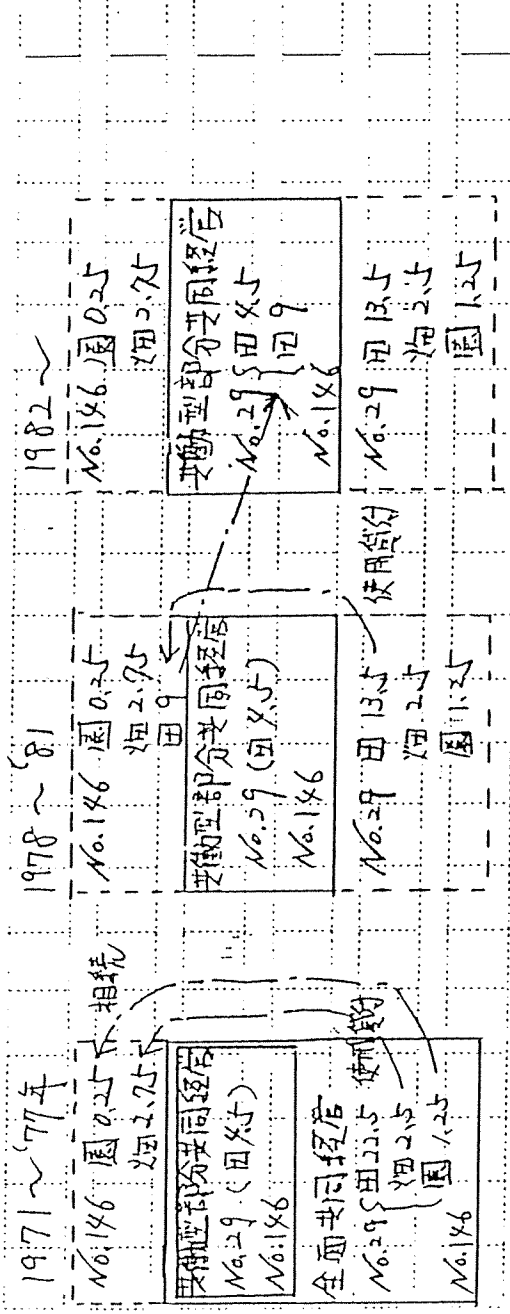 1971～'77年
No.146 園 0.25 相続
畑 2.75
共働型部分共同経営
No.29 (田 4.5)
No.146
全面共同経営 使用貸付
No.29 { 田 22.5
畑 2.5
園 1.25
No.146
1978～'81
No.146 園 0.25
畑 2.75
田 9
共働型部分共同経営
No.29 (田 4.5)
No.146
No.29 田 13.5 使用貸付
畑 2.5
園 1.25
1982～
No.146 園 0.25
畑 2.75
共働型部分共同経営
No.29 { 田 4.5
田 9
No.146
No.29 田 13.5
畑 2.5
園 1.25